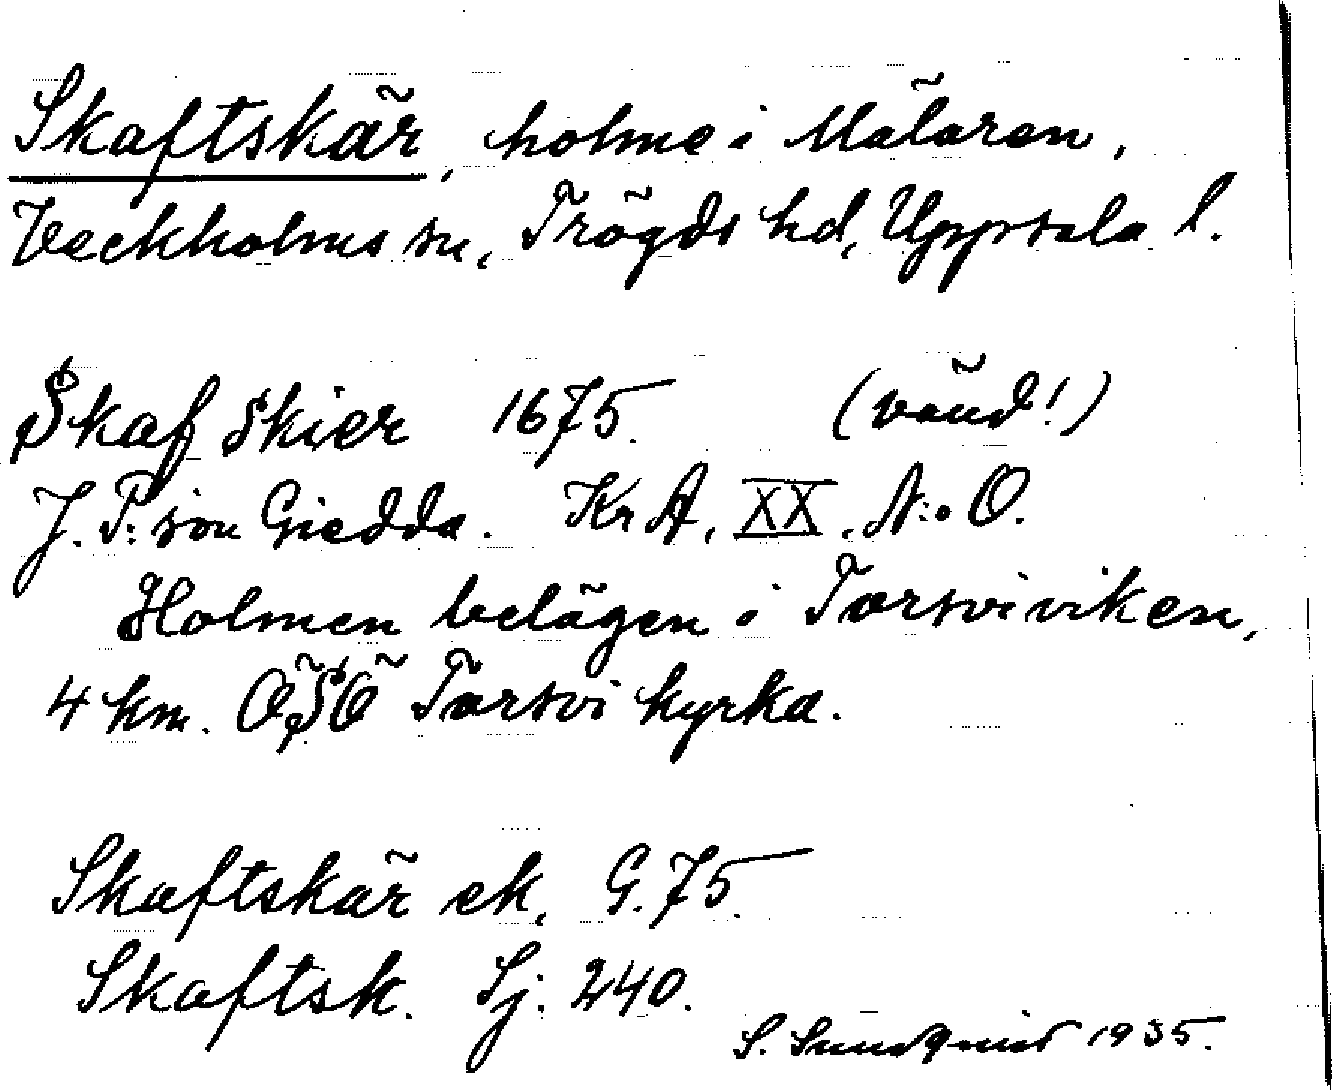 Skaftskär, holme i Mälaren,
Veckholms sn, Trögds hd, Uppsala l.
Skaf Skier 1675. (vänd!)
J. P:son Giedda. KrA, XX, N:o O.
Holmen belägen i Torsviviken,
4 km. ÖSÖ Torsvi kyrka.
Skaftskär ek. G.75.
Skaftsk. Sj. 240.
S. Sundqvist 1935.